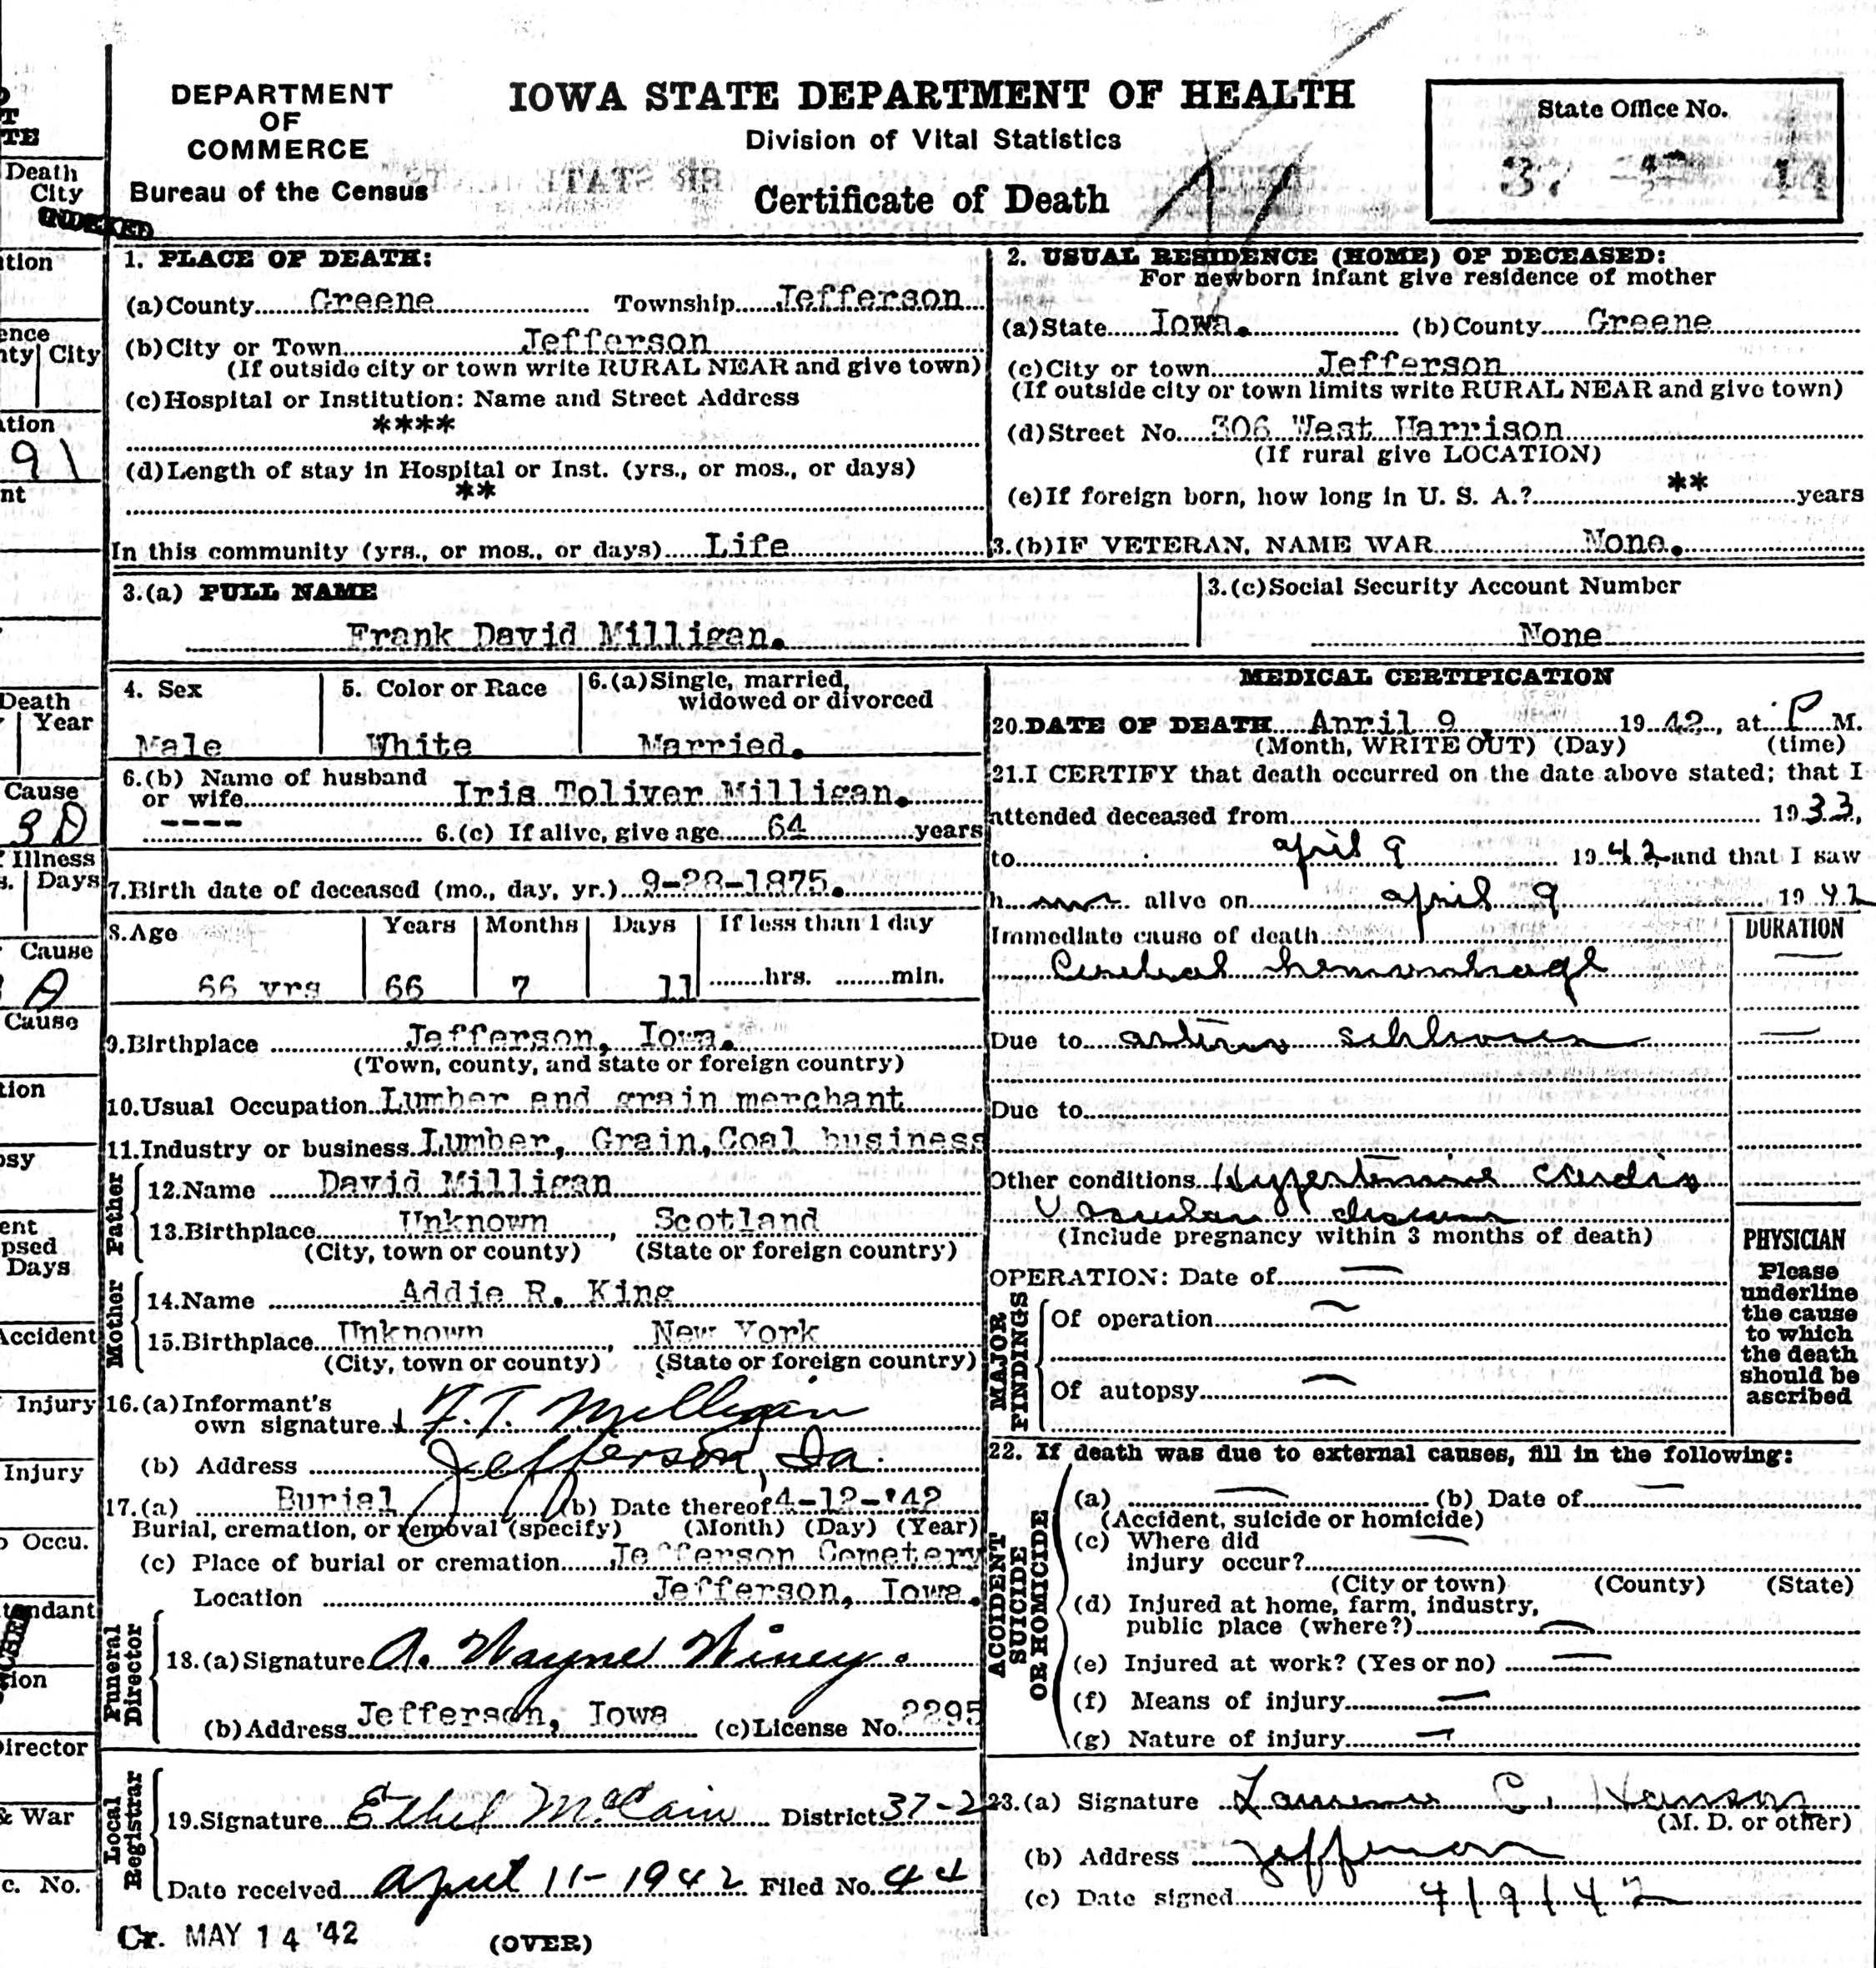 DEPARTMENT
OF
COMMERCE
Bureau of the Census
IOWA STATE DEPARTMENT OF HEALTH
Division of Vital Statistics
Certificate of Death
State Office No.
37
INDEXED
1. PLACE OF DEATH:
(a) County Greene Township Jefferson
(b) City or Town Jefferson
(If outside city or town write RURAL NEAR and give town)
(c) Hospital or Institution: Name and Street Address
****
(d) Length of stay in Hospital or Inst. (yrs., or mos., or days)
**
In this community (yrs., or mos., or days) Life
2. USUAL RESIDENCE (HOME) OF DECEASED:
For newborn infant give residence of mother
(a) State Iowa. (b) County Greene
(c) City or town Jefferson
(If outside city or town limits write RURAL NEAR and give town)
(d) Street No. 306 West Harrison
(If rural give LOCATION)
(e) If foreign born, how long in U. S. A.? ** years
3. (b) IF VETERAN, NAME WAR None.
3. (a) FULL NAME
Frank David Milligan.
3. (c) Social Security Account Number
None
4. Sex
Male
5. Color or Race
White
6. (a) Single, married,
widowed or divorced
Married.
6. (b) Name of husband
or wife Iris Toliver Milligan.
----
6. (c) If alive, give age 64 years
7. Birth date of deceased (mo., day, yr.) 9-28-1875.
8. Age Years Months Days If less than 1 day
66 yrs 66 7 11 hrs. min.
9. Birthplace Jefferson, Iowa.
(Town, county, and state or foreign country)
10. Usual Occupation Lumber and grain merchant
11. Industry or business Lumber, Grain, Coal business
Father
12. Name David Milligan
13. Birthplace Unknown, Scotland
(City, town or county) (State or foreign country)
Mother
14. Name Addie R. King
15. Birthplace Unknown, New York
(City, town or county) (State or foreign country)
16. (a) Informant's
own signature F. T. Milligan
(b) Address Jefferson, Ia.
17. (a) Burial (b) Date thereof 4-12-'42
Burial, cremation, or removal (specify) (Month) (Day) (Year)
(c) Place of burial or cremation Jefferson Cemetery
Location Jefferson, Iowa.
Funeral
Director
18. (a) Signature A. Wayne Winey.
(b) Address Jefferson, Iowa (c) License No. 2295
Local
Registrar
19. Signature Ethel McCain District 37-2
Date received April 11-1942 Filed No. 44
Cr. MAY 14 '42
(OVER)
MEDICAL CERTIFICATION
20. DATE OF DEATH April 9, 1942, at P M.
(Month, WRITE OUT) (Day) (time)
21. I CERTIFY that death occurred on the date above stated; that I
attended deceased from 1933,
to april 9 1942 and that I saw
h im alive on april 9 1942
Immediate cause of death DURATION
Cerebral hemorrhage
Due to arterio schlerosis
Due to
Other conditions Hypertensive Cardio
Vascular disease
(Include pregnancy within 3 months of death)
OPERATION: Date of
MAJOR
FINDINGS
Of operation
Of autopsy
PHYSICIAN
Please
underline
the cause
to which
the death
should be
ascribed
22. If death was due to external causes, fill in the following:
ACCIDENT
SUICIDE
OR HOMICIDE
(a) (b) Date of
(Accident, suicide or homicide)
(c) Where did
injury occur?
(City or town) (County) (State)
(d) Injured at home, farm, industry,
public place (where?)
(e) Injured at work? (Yes or no)
(f) Means of injury
(g) Nature of injury
23. (a) Signature C.
(M. D. or other)
(b) Address Jefferson
(c) Date signed 4/9/42
Death
City
ence
City
91
Death
Year
Cause
Illness
Days
Cause
Cause
Days
Accident
Injury
Injury
Occu.
& War